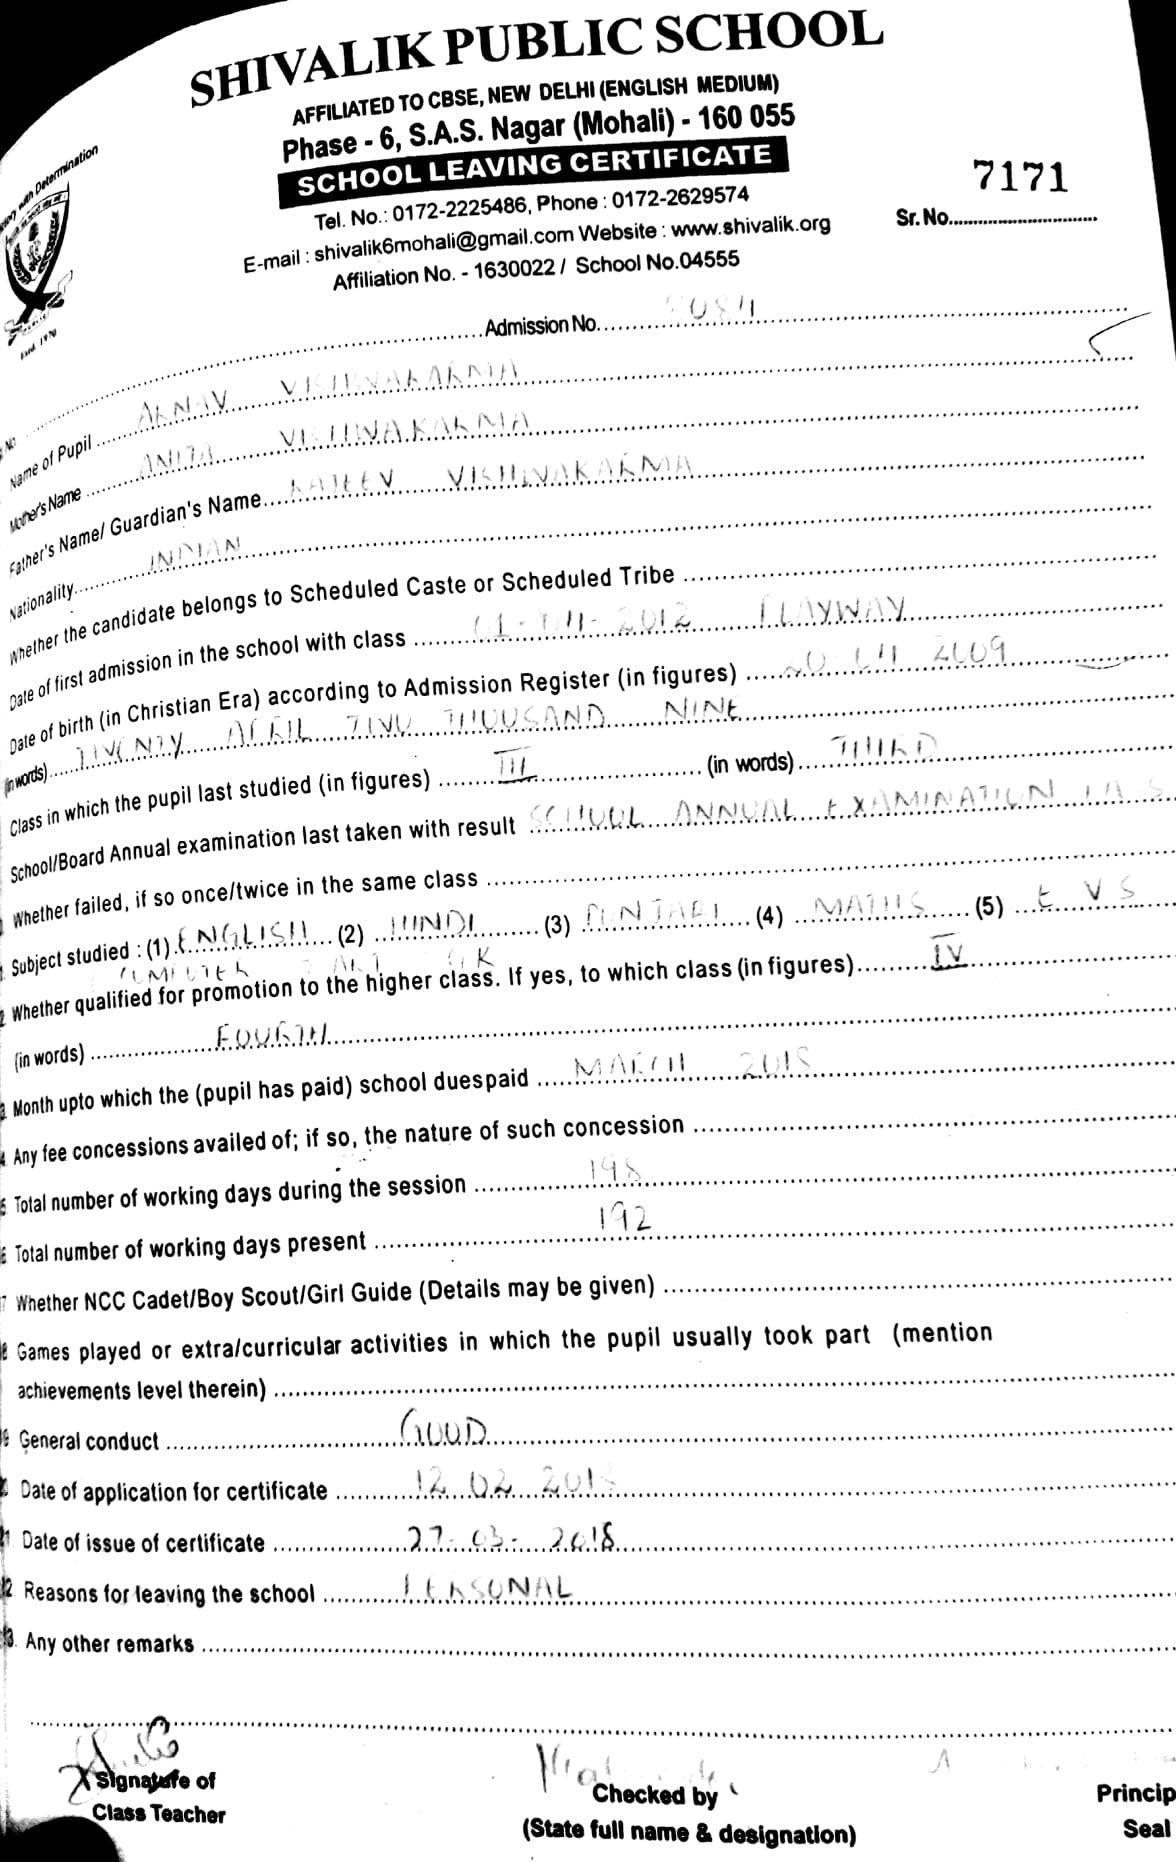 SHIVALIK PUBLIC SCHOOL
AFFILIATED TO CBSE, NEW DELHI (ENGLISH MEDIUM)
Phase - 6, S.A.S. Nagar (Mohali) - 160 055
SCHOOL LEAVING CERTIFICATE
7171
Tel. No.: 0172-2225486, Phone : 0172-2629574
Sr. No.
E-mail : shivalik6mohali@gmail.com Website : www.shivalik.org
Affiliation No. - 1630022 / School No.04555
with Determination
Estd. 1970
No. Admission No.
Name of Pupil ARNAV VISHWAKARMA
Mother's Name ANITA VISHWAKARMA
Father's Name/ Guardian's Name RAJEEV VISHWAKARMA
Nationality INDIAN
Whether the candidate belongs to Scheduled Caste or Scheduled Tribe
Date of first admission in the school with class 2012 PLAYWAY
Date of birth (in Christian Era) according to Admission Register (in figures) 20 04 2009
(in words) TWENTY APRIL TWO THOUSAND NINE
Class in which the pupil last studied (in figures) III (in words) THIRD
School/Board Annual examination last taken with result SCHOOL ANNUAL EXAMINATION
Whether failed, if so once/twice in the same class
Subject studied : (1) ENGLISH (2) HINDI (3) PUNJABI (4) MATHS (5) E V S
COMPUTER ART GK
Whether qualified for promotion to the higher class. If yes, to which class (in figures) IV
(in words) FOURTH
Month upto which the (pupil has paid) school duespaid MARCH 2018
Any fee concessions availed of; if so, the nature of such concession
Total number of working days during the session 198
Total number of working days present 192
7 Whether NCC Cadet/Boy Scout/Girl Guide (Details may be given)
Games played or extra/curricular activities in which the pupil usually took part (mention
achievements level therein)
General conduct GOOD
Date of application for certificate 12 02 2018
Date of issue of certificate 27-03-2018
Reasons for leaving the school PERSONAL
Any other remarks
Signature of
Class Teacher
Checked by
(State full name & designation)
Princip
Seal